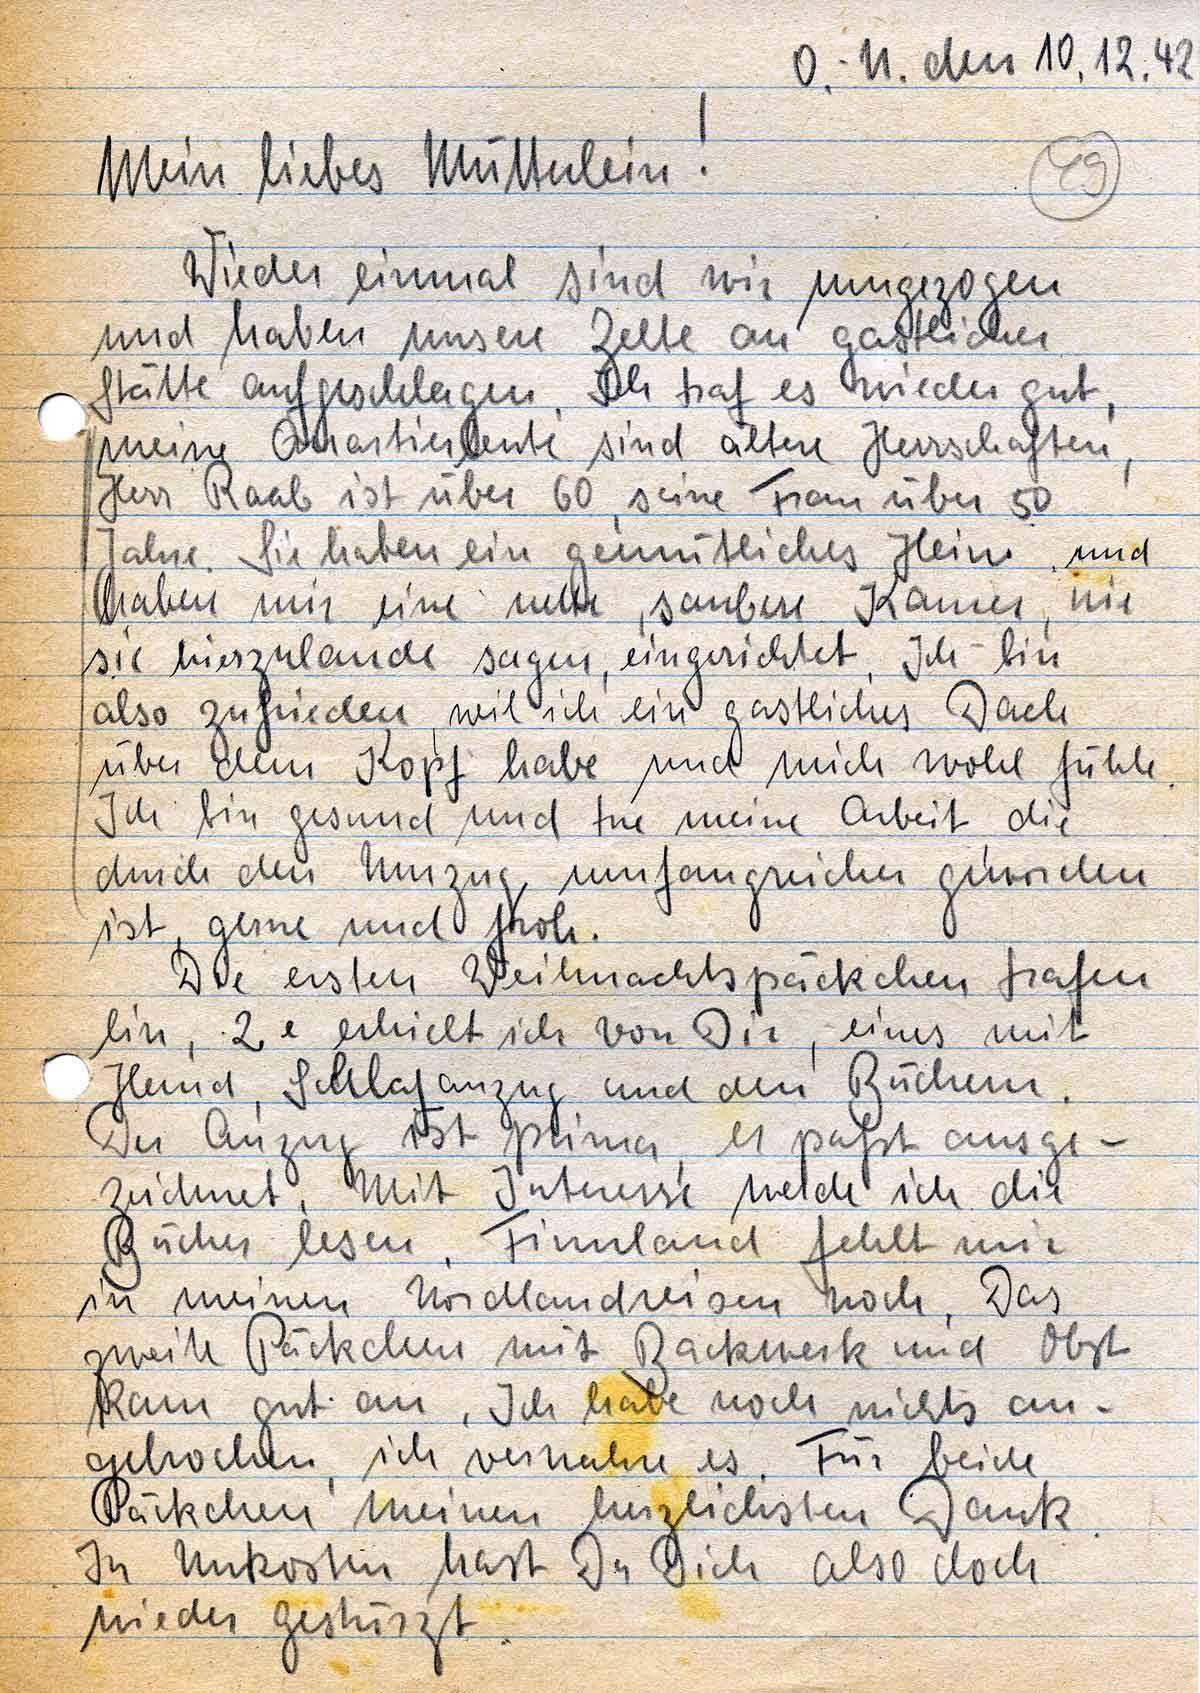 O.-U. den 10.12.42
49
Mein liebes Mütterlein!
Wieder einmal sind wir umgezogen
und haben unsere Zelte an gastlicher
Stätte aufgeschlagen. Ich traf es wieder gut,
meine Quartiersleute sind ältere Herrschaften,
Herr Raab ist über 60, seine Frau über 50
Jahre. Sie haben ein gemütliches Heim und
haben mir eine nette, saubere Kamer, wie
sie hierzulande sagen, eingerichtet. Ich bin
also zufrieden, weil ich ein gastliches Dach
über dem Kopf habe und mich wohl fühle.
Ich bin gesund und tue meine Arbeit die
durch den Umzug umfangreicher geworden
ist, gerne und froh.
Die ersten Weihnachtspäckchen trafen
ein, 2 e erhielt ich von Dir, eines mit
Hemd, Schlafanzug und den Büchern.
Der Anzug ist prima, er paßt ausge-
zeichnet. Mit Interesse werde ich die
Bücher lesen. Finnland fehlt mir
in meinen Nordlandreisen noch. Das
zweite Päckchen mit Backwerk und Obst
kam gut an. Ich habe noch nichts an-
gebrochen, ich verwahre es. Für beide
Päckchen meinen herzlichsten Dank.
In Unkosten hast Du Dich also doch
wieder gestürzt.